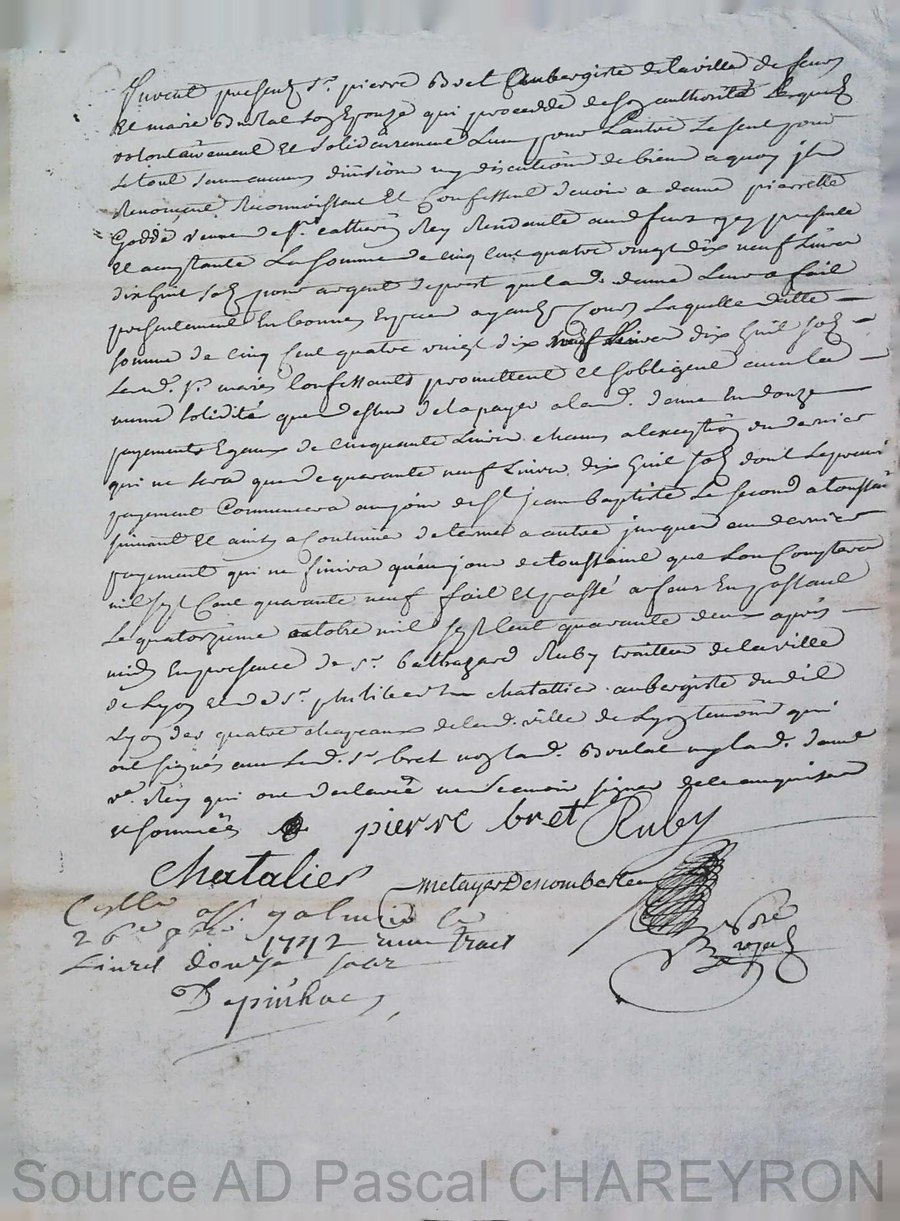 furent presents Sr. pierre Bret aubergiste de la ville de feurs
Et marie Boulat son Epouze qui procedde de son authorité Lesquels
volontairement Et solidairement L'un pour L'autre Le seul pour
Le tout sans aucune division ny discution de biens a quoy ils
Renoncent Reconnoissent Et Confessent devoir a dame pierrette
Goddé veuve de Sr. catherin Rey Rendante aud feurs icy presente
Et aceptante La somme de cinq cent quatre vingt dix neuf Livres
dix huit sols pour argent de prest que lad. dame Leur a fait
presentement En bonnes Especes ayant Cours Laquelle ditte
somme de cinq Cent quatre vingt dix neuf Livres dix huit sols
Lesd. Sr. mariés Confessants promettent et sobligent avec la
meme solidité que dessus de la payer a lad. dame En douze
payements Egaux de cinquante Livres chacun a lexception du dernier
qui ne sera que de quarante neuf Livres dix huit sols dont Le premier
payement Commencera au jour de St. jean baptiste Le second a toussaint
suivant Et ainsy a Continuer de termes a autre jusques au dernier
payement qui ne finira qu'au jour de toussaint que Lon Comptera
mil sept Cent quarante neuf fait Et passé a feurs En passant
Le quatorzieme octobre mil sept Cent quarante deux après
midy En presence de Sr. baltazard Ruby traitteur de la ville
de Lyon Et de Sr. philibert chatallier aubergiste dudit
Lyon des quatre chapeaux de lad. ville de Lyon temoins qui
ont signés avec Led. Sr. bret non lad. Boulat ny lad. dame
ve. Rey qui ont declaré ne scavoir signer de ce enquises
Et sommées
pierre bret Ruby
Chatalier
metayer Desombes
Cxlle a St galmier le
26e 8bre 1742 recu trois
Livres douze sols
Depinhac
Nore
royal
Source AD Pascal CHAREYRON